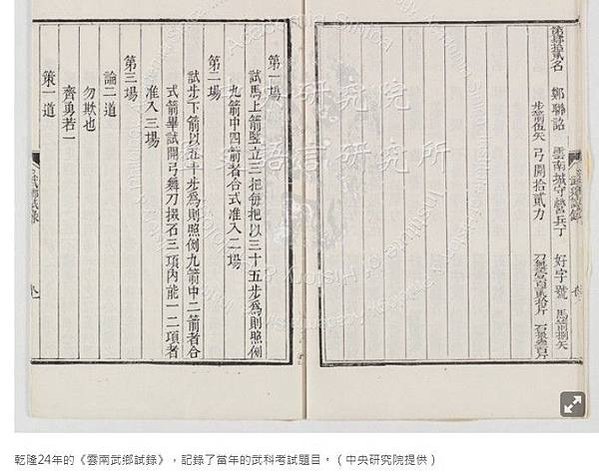 第肆拾貳名 鄭聯詔 雲南城守營兵丁 好字號 馬箭捌矢
步箭伍矢 弓開拾貳力 刀舞壹百貳拾斤
第一場
試馬上箭豎立三把每把以三十五步為則照例
九箭中四箭者合式准入二場
第二場
試步下箭以五十步為則照例九箭中二箭者合
式箭畢試開弓舞刀掇石三項內能一二項者
准入三場
第三場
論二道
勿欺也
齊勇若一
策一道
武鄉試錄
研究院
語言研究所
乾隆24年的《雲南武鄉試錄》，記錄了當年的武科考試題目。（中央研究院提供）